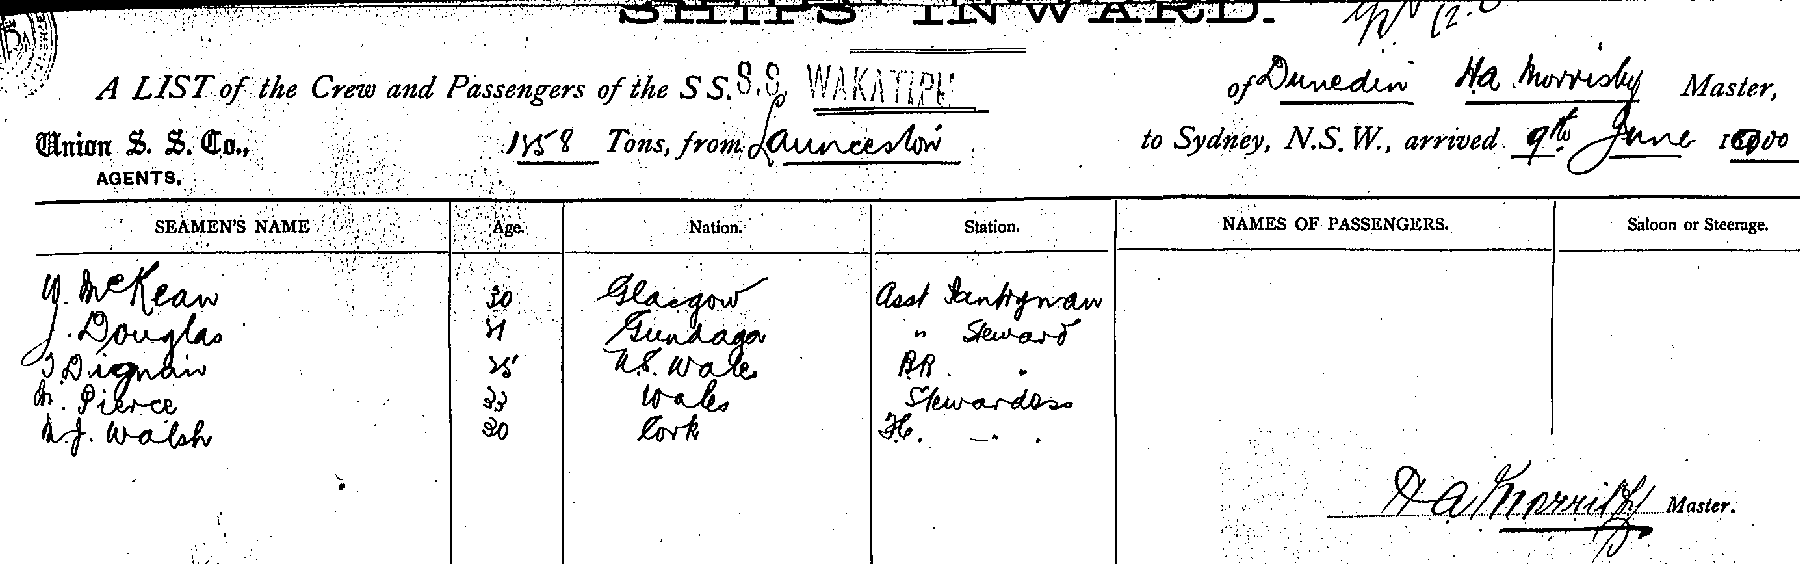 SHIPS INWARD.
A LIST of the Crew and Passengers of the S S. S.S. WAKATIPU of Dunedin Ha Morrisby Master,
Union S. S. Co., 1858 Tons, from Launceston to Sydney, N.S.W., arrived 9th June 1900
AGENTS.
SEAMEN'S NAME Age. Nation. Station. NAMES OF PASSENGERS. Saloon or Steerage.
McKean 30 Glasgow Asst Pantryman
J. Douglas 21 Gundagai " Steward
T. Dignan 25 N.S. Wales BR "
M. Pierce 33 Wales Stewardess
M J. Walsh 30 Cork F.C. - " .
H A Morrisby Master.